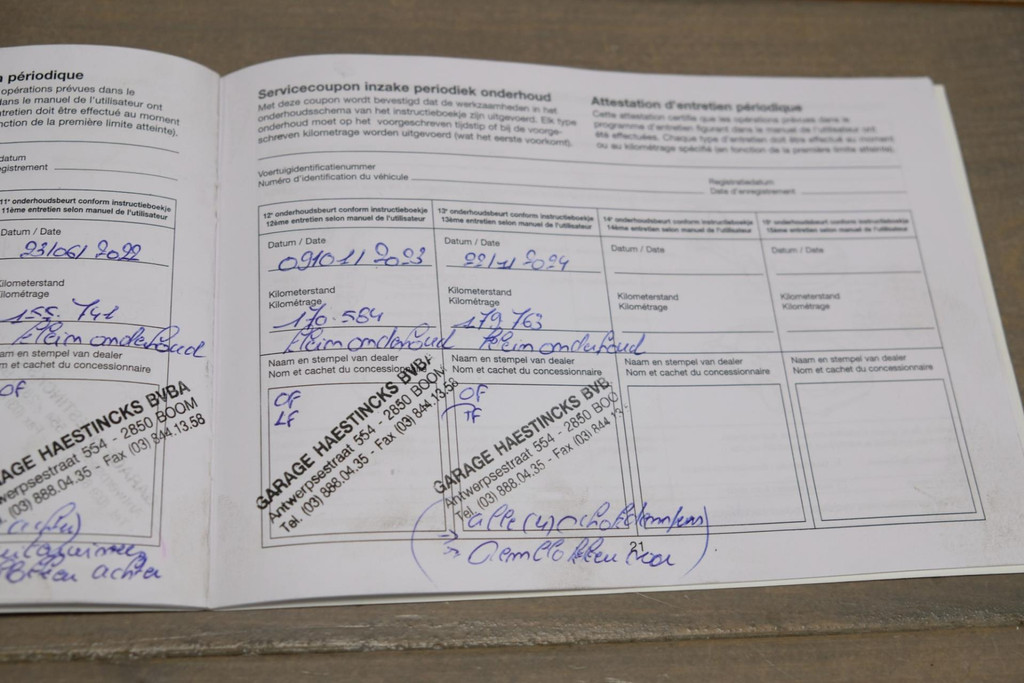 périodique
opérations prévues dans le
dans le manuel de l'utilisateur ont
entretien doit être effectué au moment
nction de la première limite atteinte).
datum
egistrement
11e onderhoudsbeurt conform instructieboekje
11ème entretien selon manuel de l'utilisateur
Datum / Date
23/06/2022
Kilometerstand
Kilométrage
155.741
klein onderhoud
aam en stempel van dealer
m et cachet du concessionnaire
OF
AGE HAESTINCKS BVBA
werpsestraat 554 - 2850 BOOM
(03) 888.04.35 - Fax (03) 844.13.58
achter
Servicecoupon inzake periodiek onderhoud
Met deze coupon wordt bevestigd dat de werkzaamheden in het
onderhoudsschema van het instructieboekje zijn uitgevoerd. Elk type
onderhoud moet op het voorgeschreven tijdstip of bij de voorge-
schreven kilometrage worden uitgevoerd (wat het eerste voorkomt).
Attestation d'entretien périodique
Cette attestation certifie que les opérations prévues dans le
programme d'entretien figurant dans le manuel de l'utilisateur ont
été effectuées. Chaque type d'entretien doit être effectué au moment
ou au kilométrage spécifié (en fonction de la première limite atteinte).
Voertuigidentificatienummer
Numéro d'identification du véhicule
Registratiedatum
Date d'enregistrement
12e onderhoudsbeurt conform instructieboekje
12ème entretien selon manuel de l'utilisateur
Datum / Date
09/01/2023
Kilometerstand
Kilométrage
170.564
klein onderhoud
Naam en stempel van dealer
Nom et cachet du concessionnaire
OF
LF
GARAGE HAESTINCKS BVBA
Antwerpsestraat 554 - 2850 BOOM
Tel. (03) 888.04.35 - Fax (03) 844.13.58
13e onderhoudsbeurt conform instructieboekje
13ème entretien selon manuel de l'utilisateur
Datum / Date
22/11/2024
Kilometerstand
Kilométrage
179.763
klein onderhoud
Naam en stempel van dealer
Nom et cachet du concessionnaire
OF
GARAGE HAESTINCKS BVB
Antwerpsestraat 554 - 2850 BOO
Tel. (03) 888.04.35 - Fax (03) 844.13
alle (4)
14e onderhoudsbeurt conform instructieboekje
14ème entretien selon manuel de l'utilisateur
Datum / Date
Kilometerstand
Kilométrage
Naam en stempel van dealer
Nom et cachet du concessionnaire
15e onderhoudsbeurt conform instructieboekje
15ème entretien selon manuel de l'utilisateur
Datum / Date
Kilometerstand
Kilométrage
Naam en stempel van dealer
Nom et cachet du concessionnaire
21